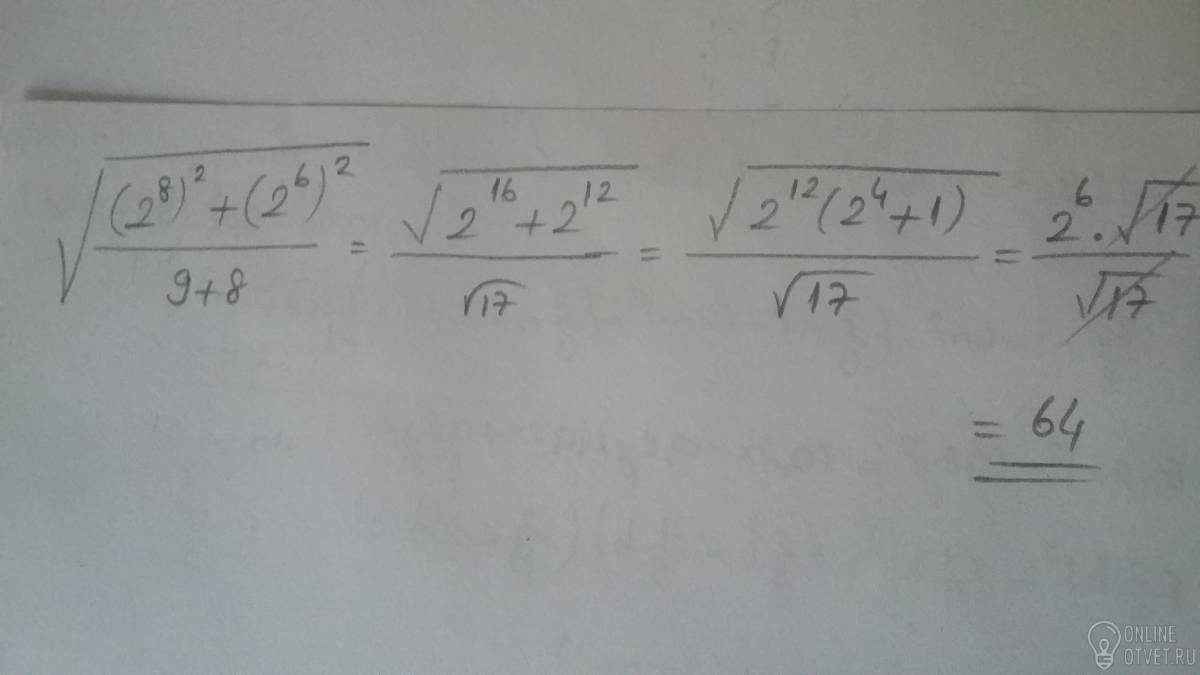 √((2⁸)² + (2⁶)²)/(9+8) = √(2¹⁶ + 2¹²)/√17 = √(2¹²(2⁴+1))/√17 = 2⁶·√17/√17
= 64
ONLINE
OTVET.RU